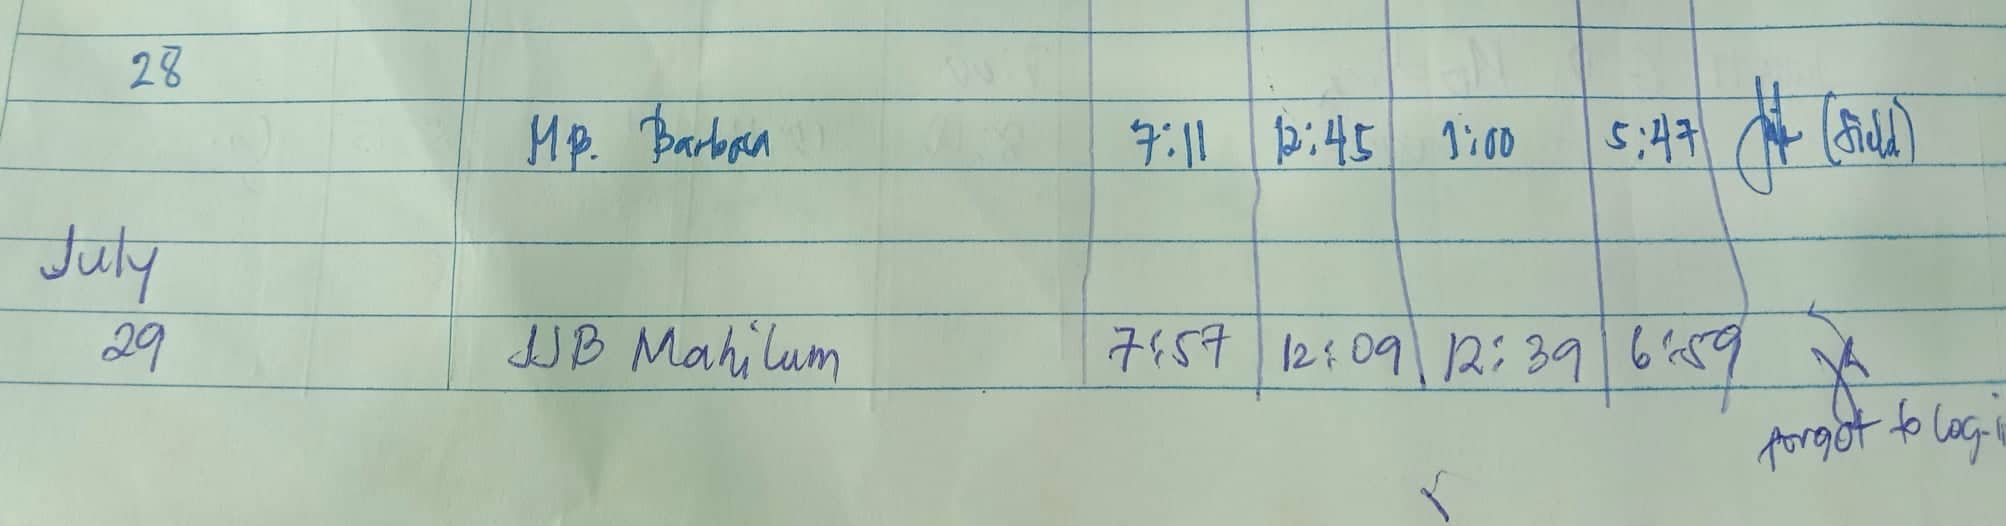 28
MP. Barbosa 7:11 12:45 1:00 5:47 (field)
July
29 JJB Mahilum 7:57 12:09 12:39 6:59
forgot to log-in